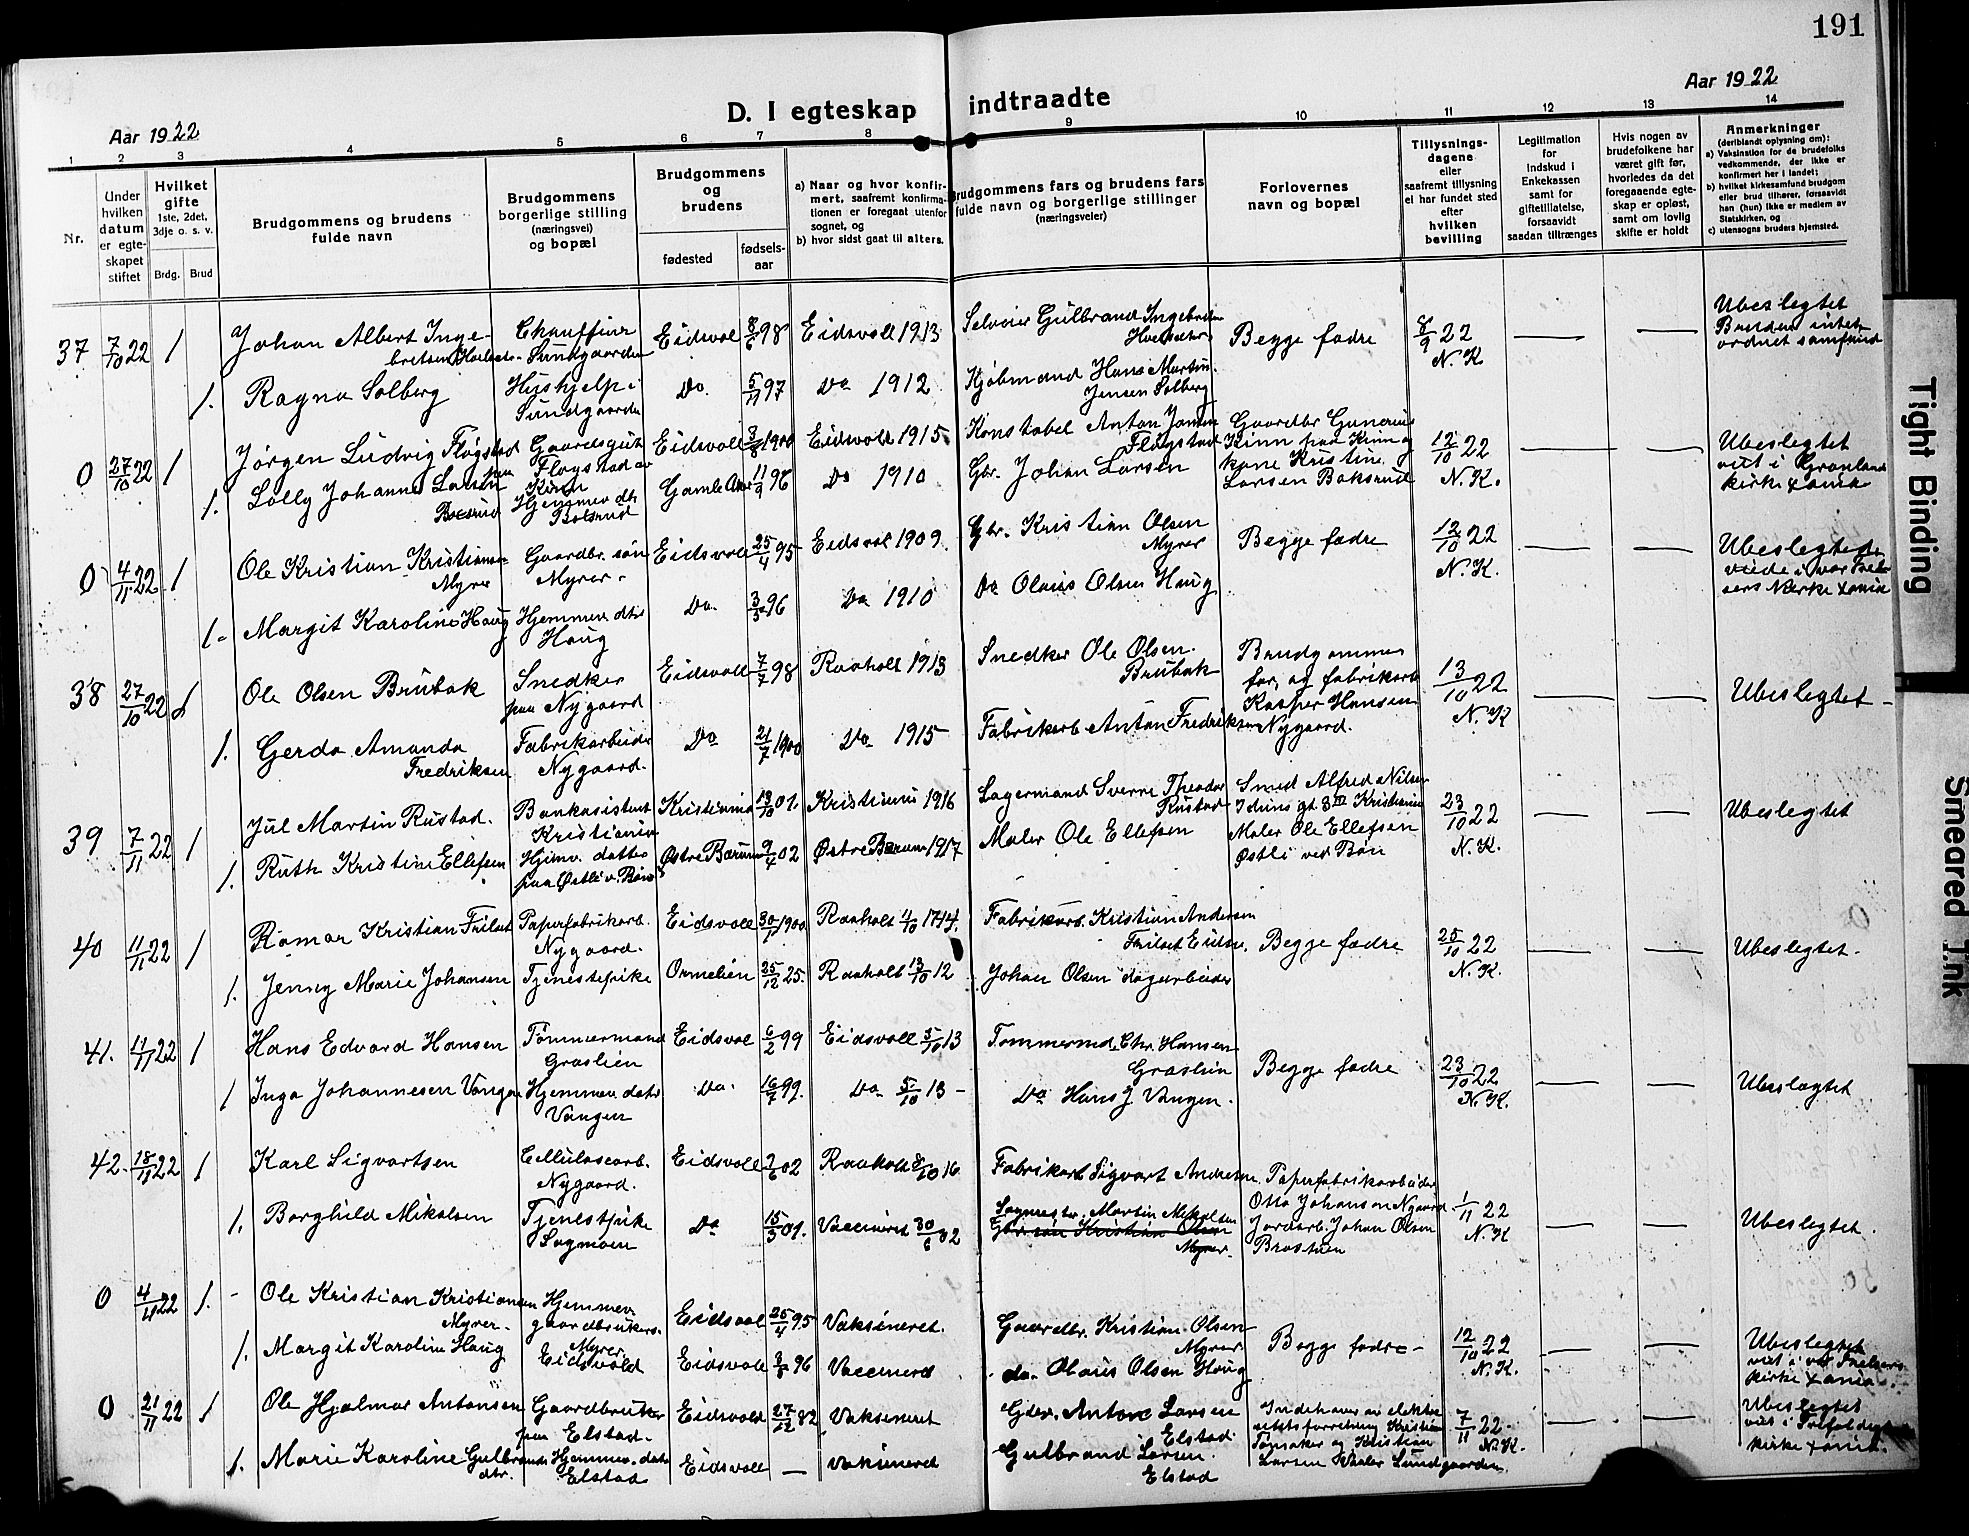 191
Aar 1922
D. I egteskap indtraadte
Aar 1922
1 2 3 4 5 6 7 8 9 10 11 12 13 14
Nr.
Under hvilken datum er egteskapet stiftet
Hvilket gifte 1ste, 2det, 3dje o. s. v.
Brdg. Brud
Brudgommens og brudens fulde navn
Brudgommens borgerlige stilling (næringsvei) og bopæl
Brudgommens og brudens
fødested
fødsels-aar
a) Naar og hvor konfirmert, saafremt konfirmationen er foregaat utenfor sognet, og
b) hvor sidst gaat til alters.
Brudgommens fars og brudens fars fulde navn og borgerlige stillinger (næringsveier)
Forlovernes navn og bopæl
Tillysnings-dagene eller saafremt tillysning ei har fundet sted efter hvilken bevilling
Legitimation for Indskud i Enkekassen samt for giftetillatelse, forsaavidt saadan tiltrænges
Hvis nogen av brudefolkene har været gift før, hvorledes da det foregaaende egteskap er opløst, samt om lovlig skifte er holdt
Anmerkninger (deriblandt oplysning om):
a) Vaksination for de brudefolks vedkommende, der ikke er konfirmert her i landet;
b) hvilket kirkesamfund brudgom eller brud tilhører, forsaavidt han (hun) ikke er medlem av Statskirken, og
c) utensogns bruders hjemsted.
37 7/10 22 1 Johan Albert Ingebretsen Chauffinr Sundgaarden Eidsvol 8/6 98 Eidsvoll 1913 Selveier Gulbrand Ingebretsen Begge fædre 8/9 22 N. K — — Ubeslegtet
1. Ragna Solberg Hushjelp Sundgaarden Do. 5/11 97 Do 1912 Kjøbmand Hans Martin Jensen Solberg
0 27/10 22 1 Jørgen Ludvig Fløgstad Gaardsgut Eidsvoll 3/8 1900 Eidsvoll 1915 Konstabel Anton Jansen Fløgstad Gaardbr Gunerius Kinn paa Kinn og kone Kristine Larsen Boksrud 12/10 22 N. K. — — Ubeslegtet viet i Grønland kirke Xania
1. Lolly Johanne Larsen Hjemmev dtr 11/9 96 Do 1910 Gbr. Johan Larsen
0 4/11 22 1 Ole Kristian Kristiansen Myrer Gaardbr. søn Myrer Eidsvoll 25/4 95 Eidsvol 1909. Gbr. Kristian Olsen Myrer Begge fædre 12/10 22 N. K. — — Ubeslegtede
1. Margit Karoline Haug Hjemmev dtr Haug Do. 3/5 96 Do 1910 Do Olaus Olsen Haug
38 27/10 22 1 Ole Olsen Brubak Snedker paa Nygaard Eidsvoll 7/7 98 Raaholt 1913 Snedker Ole Olsen Brubak Brudgommens far, og fabrikarb Kasper Hansen Nygaard. 13/10 22 N. K — — Ubeslegtet
1. Gerda Amanda Fredriksen Fabrikarbeider Nygaard. Do 21/7 1900 Do 1915 Fabrikarb Anton Fredriksen
39 7/11 22 1 Jul Martin Rustad. Bankasistent Kristiania Kristiania 13/10 01. Kristiania 1916 Lagermand Sverre Theodor Rustad Smed Alfred Nilsen 23/10 22 N. K. — — Ubeslegtet
1. Ruth Kristine Ellefsen Hjemv. datter paa Østli v. Bøn Østre Bærum 9/7 02 Østre Bærum 1917 Maler Ole Ellefsen Maler Ole Ellefsen Østli ved Bøn
40 11/11 22 1 Ramar Kristian Frilset Papirfabrikarb. Nygaard. Eidsvoll 30/1 1900 Raaholt Fabrikarb. Kristian Andersen Begge fædre 25/10 22 N. K. — — Ubeslegtet.
1. Jenny Marie Johansen Tjenestepike Ormelien Raaholt 13/10 12 Johan Olsen dagarbeider
41. 11/11 22 1 Hans Edvard Hansen Tømmermand Graslien Eidsvol 6/2 99 Eidsvoll 5/10 13 Tømmermd. Chr. Hansen Graslien Begge fædre 23/10 22 N. K. — — Ubeslægtet
1 Inga Johannesen Vangen Hjemmev datr Vangen Do. 16/7 99. Do 5/10 13 Do Hans J Vangen.
42. 18/11 22 1 Karl Sigvartsen Cellulosearb. Nygaard. Eidsvoll 02 Raaholt 8/10 16 Fabrikarb Sigvart Andresen Papirfabrikarbeider Otto Johanson Nygaard 1/11 22 N. K — — Ubeslegtet.
1. Borghild Mikalsen Tjenestpike Sagmoen Do 15/3 01. Vaccineret 30/6 02 Martin Mikalsen Jordarb. Johan Olsen
0 4/11 22 1. Ole Kristian Kristiansen Myrer. Hjemmev. gaardbrukers. Myrer Eidsvold Eidsvol 25/4 95 Vaksineret. Gaardbr. Kristian Olsen Myrer Begge fædre 12/10 22 N. K. — — Ubeslegtet viet i vor Frelsers kirke Xania.
1. Margit Karoline Haug Eidsvoll 3/5 96 Vaccineret do. Olaus Olsen Haug
0 21/11 22 1 Ole Hjalmar Antonsen Gaardbruker paa Elstad. Eidsvold 27/12 82 Vaksineret Gdbr. Anton Larsen Elstad 7/11 22 N. K. — — Ubeslegtet viet i Trefoldighets kirke Xania.
1. Marie Karoline Gulbrands dtr. Hjemmev. datr Elstad Eidsvoll — Vaksineret Gulbrand Larsen Elstad Larsen Vaaler Sundgaarden.
Tight Binding
Smeared Ink